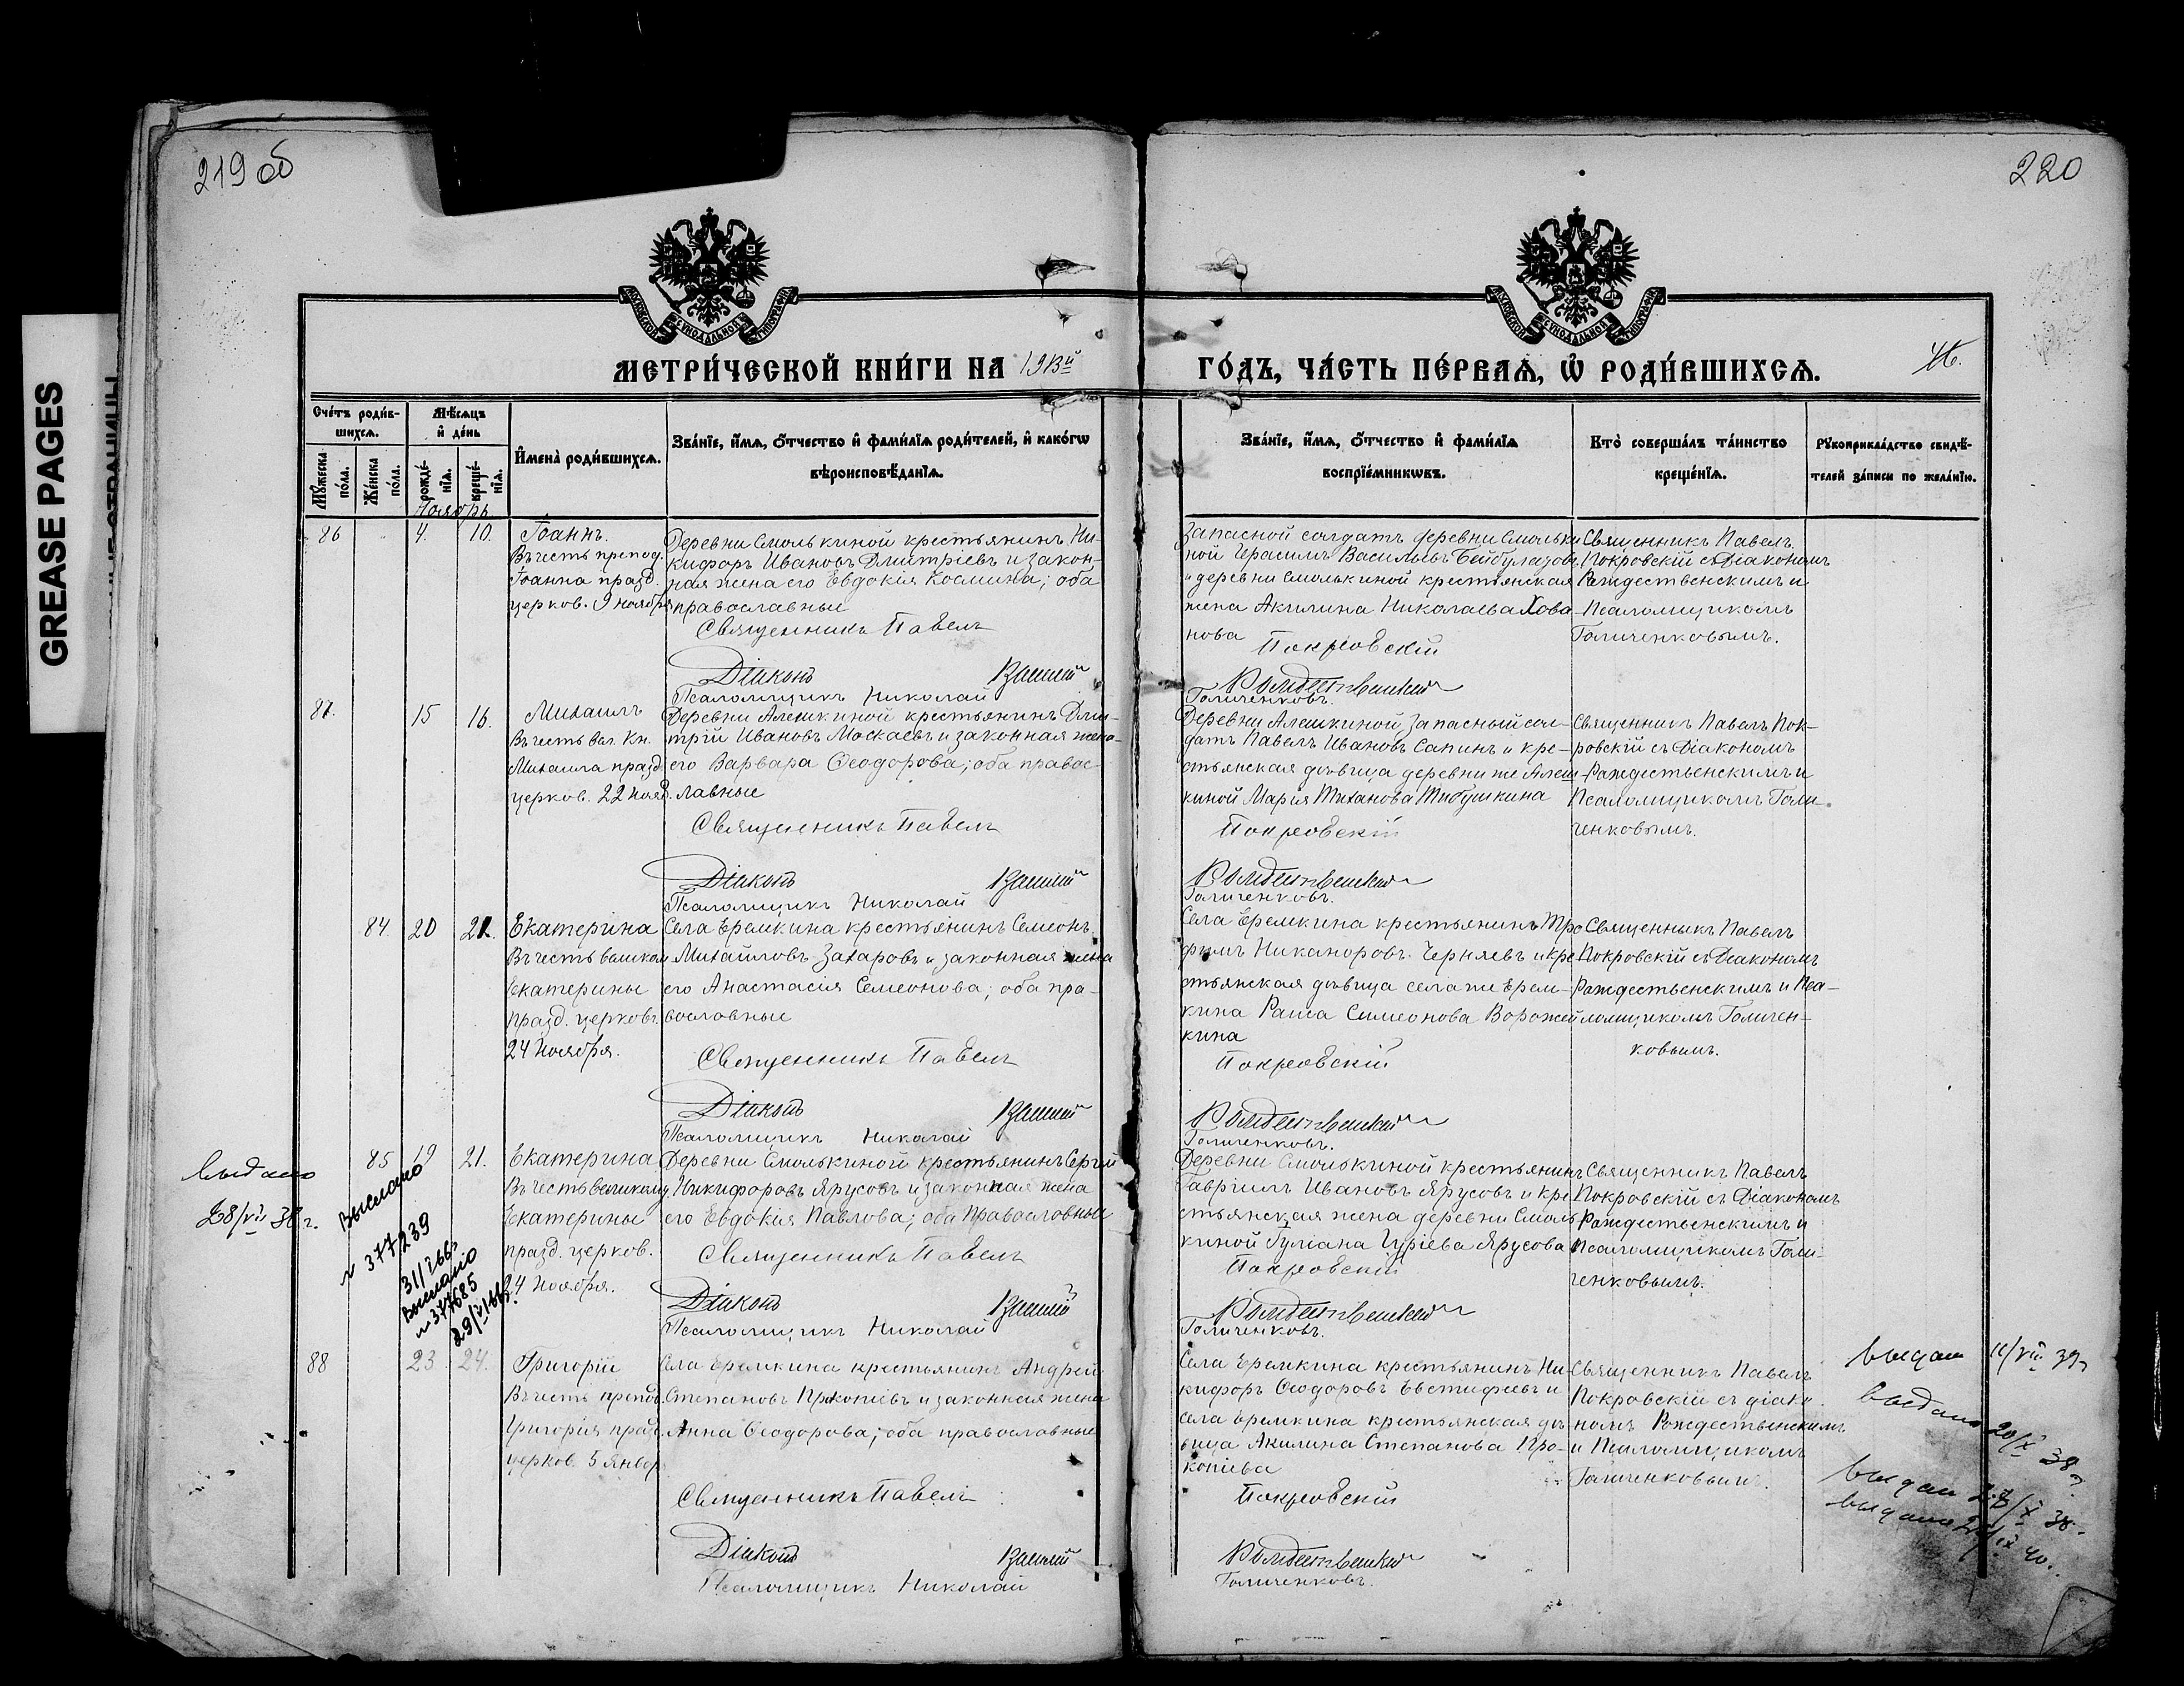 219 об
220
GREASE PAGES
МОСКОВСКОЙ СѴНОДАЛЬНОЙ ТИПОГРАФІИ
МОСКОВСКОЙ СѴНОДАЛЬНОЙ ТИПОГРАФІИ
МЕТРИ́ЧЕСКОЙ КНИ́ГИ НА 1913й
ГО́ДЪ, ЧА́СТЬ ПЕ́РВАѦ, Ѡ҆ РОДИ́ВШИХСѦ.
Сче́тъ роди́в-
шихсѧ.
Мѣ́сѧцъ
и҆ де́нь
Мꙋ́жеска
по́ла.
Же́нска
по́ла.
рожде́-
нїѧ.
креще́-
нїѧ.
И҆мена̀ роди́вшихсѧ.
Зва́нїе, и҆́мѧ, ѻ҆́тчество и҆ фами́лїѧ роди́телей, и҆ како́гѡ
вѣроисповѣ́данїѧ.
Зва́нїе, и҆́мѧ, ѻ҆́тчество и҆ фами́лїѧ
воспрїе́мникѡвъ.
Кто̀ соверша́лъ та́инство
креще́нїѧ.
Рꙋкоприкла́дство свидѣ́-
телей за́писи по жела́нїю.
Ноябрь
86 4. 10.
Іоаннъ.
Въ честь препод.
Іоанна празд.
церков. 9 ноября
Деревни Смолькиной крестьянинъ Ни-
кифоръ Ивановъ Дмитріевъ и закон-
ная жена его Евдокія Космина; оба
православные
Священникъ Павелъ
Діаконъ Василій
Псаломщикъ Николай
Запасной солдатъ деревни Смольки
ной Герасимъ Васильевъ Бейбулатовъ
и деревни Смолькиной крестьянская
жена Акилина Николаева Хова-
нова
Покровскій
Рождественскій
Голиченковъ.
Священникъ Павелъ
Покровскій съ Діакономъ
Рождественскимъ и
Псаломщикомъ
Голиченковымъ.
87. 15 16.
Михаилъ
Въ честь вел. Кн.
Михаила празд
церков. 22 нояб.
Деревни Алешкиной крестьянинъ Дми-
трій Ивановъ Москаевъ и законная жена
его Варвара Ѳеодорова; оба правос-
лавные
Священникъ Павелъ
Діаконъ Василій
Псаломщикъ Николай
Деревни Алешкиной запасный сол-
датъ Павелъ Ивановъ Сапинъ и кре-
стьянская дѣвица деревни же Алеш-
киной Марія
Покровскій
Рождественскій
Голиченковъ.
Священникъ Павелъ Пок-
ровскій съ Діакономъ
Рождественскимъ и
Псаломщикомъ Голи-
ченковымъ.
84. 20 21.
Екатерина
Въ честь великом.
Екатерины
празд. церков.
24 Ноября.
Села Еремкина крестьянинъ Семеонъ
Михайловъ Захаровъ и законная жена
его Анастасія Семеонова; оба пра-
вославные
Священникъ Павелъ
Діаконъ Василій
Псаломщикъ Николай
Села Еремкина крестьянинъ Тро
фимъ Никаноровъ Черняевъ и кре
стьянская дѣвица села же Ерем-
кина Раиса Симеонова Ворожей
кина
Покровскій
Рождественскій
Голиченковъ.
Священникъ Павелъ
Покровскій съ Діакономъ
Рождественскимъ и Пса-
ломщикомъ Голичен-
ковымъ.
85 19 21.
Екатерина
Въ честь великому.
Екатерины
празд. церков.
24 Ноября.
Деревни Смолькиной крестьянинъ Сергій
Никифоровъ Ярусовъ и законная жена
его Евдокія Павлова; оба Православные
Священникъ Павелъ
Діаконъ Василій
Псаломщикъ Николай
Деревни Смолькиной крестьянинъ
Гавріилъ Ивановъ Ярусовъ и кре
стьянская жена деревни Смоль
киной Іуліана Гуріева Ярусова
Покровскій
Рождественскій
Голиченковъ.
Священникъ Павелъ
Покровскій съ Діакономъ
Рождественскимъ и
Псаломщикомъ Голи-
ченковымъ.
выдано
28/VII 38 г.
Выслано
№ 377239
Выслано
№ 377685
88 23 24.
Григорій
Въ честь препод.
Григорія празд.
церков. 5 Январ.
Села Еремкина крестьянинъ Андрей
Степановъ Прокопіевъ и законная жена
Анна Ѳеодорова; оба православные
Священникъ Павелъ
Діаконъ Василій
Псаломщикъ Николай
Села Еремкина крестьянинъ Ни-
кифоръ Ѳеодоровъ Евстифіевъ и
села Еремкина крестьянская дѣ-
вица Акилина Степанова Про-
копіева
Покровскій
Рождественскій
Голиченковъ.
Священникъ Павелъ
Покровскій съ діако-
номъ Рождественскимъ
и Псаломщикомъ
Голиченковымъ.
выдан 11/VIII 39 г
выдано 20/X 38 г.
выдан 28/X 38.